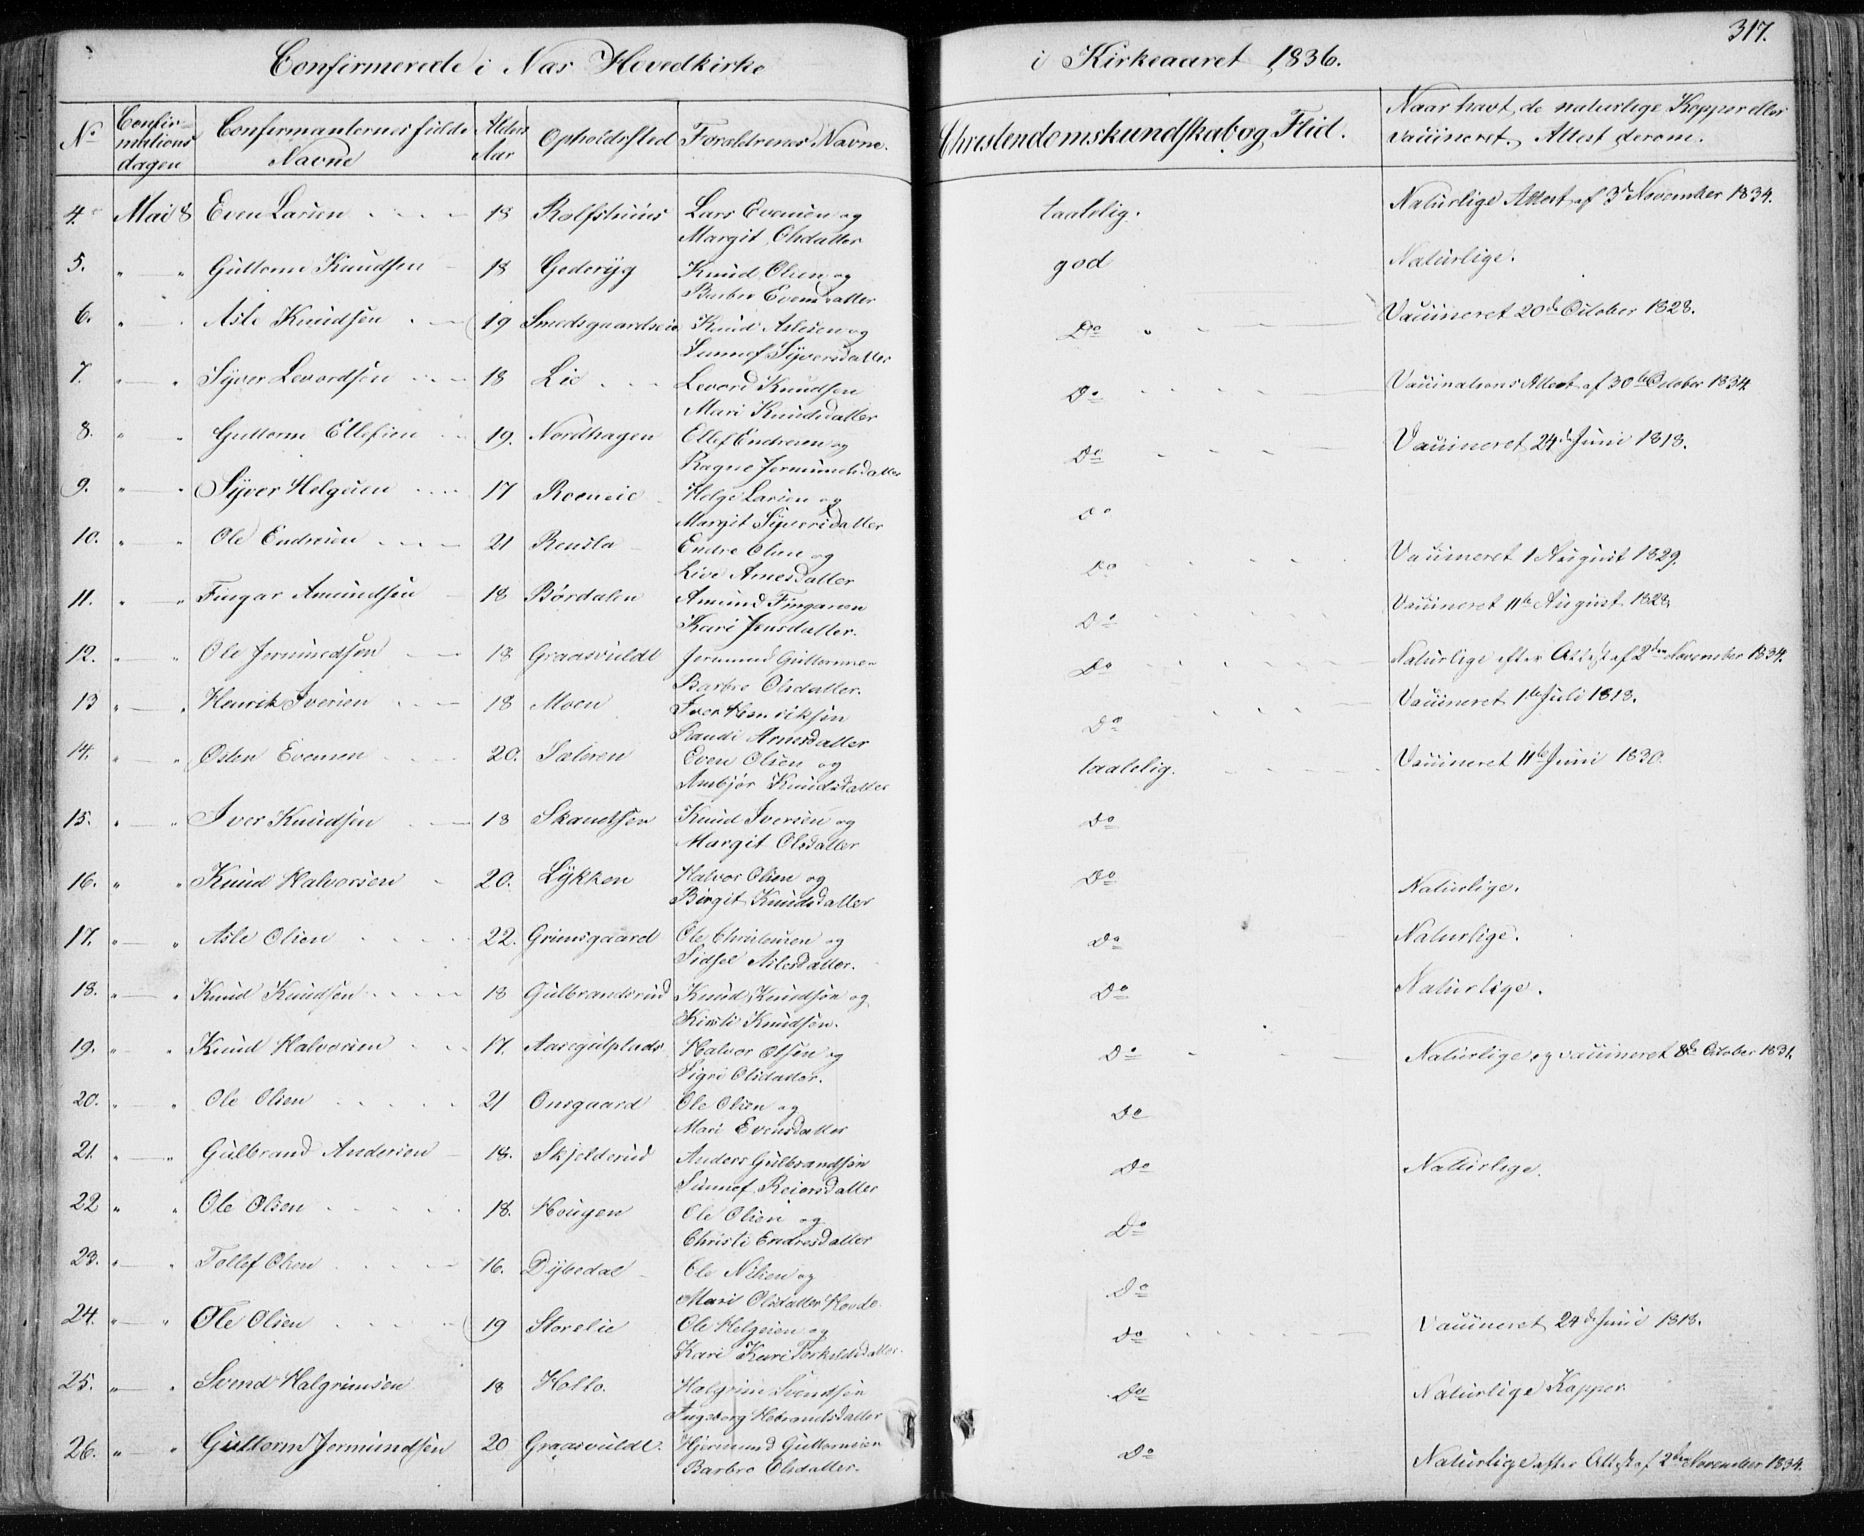 317.
Confirmerede i Næs Hovedkirke i Kirkeaaret 1836.
No Confirmationsdagen Confirmanternes fulde Navne Alder Aar Opholdssted Forældrenes Navne. Christendomskundskab og Flid. Naar havt de naturlige Kopper eller vaccineret. Attest derom.
4. Mai 8 Even Larsen 18 Rolfshuus Lars Evensen og taalelig. Naturlige Attest af 3d November 1834.
Margit Olsdatter
5. " " Guttorm Knudsen 18 Gederyg Knud Olsen og god Naturlige.
Barbro Evensdatter
6. " " Asle Knudsen 19 Smedsgaardseie Knud Aslesen og Do Vaccineret 20de October 1828.
Sunnef Syversdatter
7. " " Syver Levordsen 18 Lie Levord Knudsen Do Vaccinations Attest af 30te October 1834.
Mari Knudsdatter
8. " " Guttorm Ellefsen 19. Nordhagen Ellef Endresen og Do Vaccineret 24d Juni 1818.
Ragne Jermundsdatter
9. " " Syver Helgesen 17 Roeneie Helge Larsen og Do
Margit Syversdatter
10. " " Ole Endresen 21 Rensla Endre Olsen og Do Vaccineret 1 August 1829.
Live Arnesdatter
11. " " Fingar Amundsen 18 Børdalen Amund Fingarsen Do Vaccineret 11te August 1828.
Kari Jensdatter.
12. " " Ole Jermundsen 18 Graasvulde Jermund Guttormsen Do Naturlige efter Attest af 2den November 1834.
Barbro Olsdatter.
13 " " Henrik Iversen 18 Moen Iver Henriksen Do Vaccineret 1te Juli 1818.
Randi Arnesdatter
14. " " Østen Evensen 20. Sæteren Even Olsen og taalelig. Vaccineret 11te Juni 1830.
Ambjør Knudsdatter
15. " " Iver Knudsen 18 Skandsen Knud Iversen og Do
Margit Olsdatter
16. " " Knud Halvorsen 20. Lykken Halvor Olsen og Do Naturlige.
Birgit Knudsdatter
17. " " Asle Olsen 22. Grimsgaard Ole Christensen og Do Naturlige.
Sidsel Aslesdatter.
18. " " Knud Knudsen 18 Gulbrandsrud Knud Knudsen og Do Naturlige.
Kirsti Knudsen.
19. " " Knud Halvorsen 17. Halvor Olsen og Do Naturlige og vaccineret 8de October 1831.
Sigri Olsdatter.
20. " " Ole Olsen 21 Onsgaard Ole Olsen og Do
Mari Evensdatter
21. " " Gulbrand Andersen 18. Skjelderud Anders Gulbrandsen Do Naturlige.
Sunnef Reiersdatter
22 " " Ole Olsen 18. Hougen Ole Olsen og Do
Christi Endresdatter
23. " " Tollef Olsen 16. Dybedal Ole Nilsen og Do
Mari Olsdatter Hovde.
24. " " Ole Olsen 19 Storelie Ole Helgesen og Do Vaccineret 24d Juni 1818.
Kari Kari Torkildsdatter.
25. " " Svend Halgrimsen 18 Hollo. Halgrim Svendsen Do Naturlige Kopper.
Ingeborg Hebrandsdatter
26. " " Guttorm Jermundsen 20 Graasvulde. Hjermund Guttormsen Do Naturlige efter Attest af 2den November 1834.
Barbro Olsdatter.